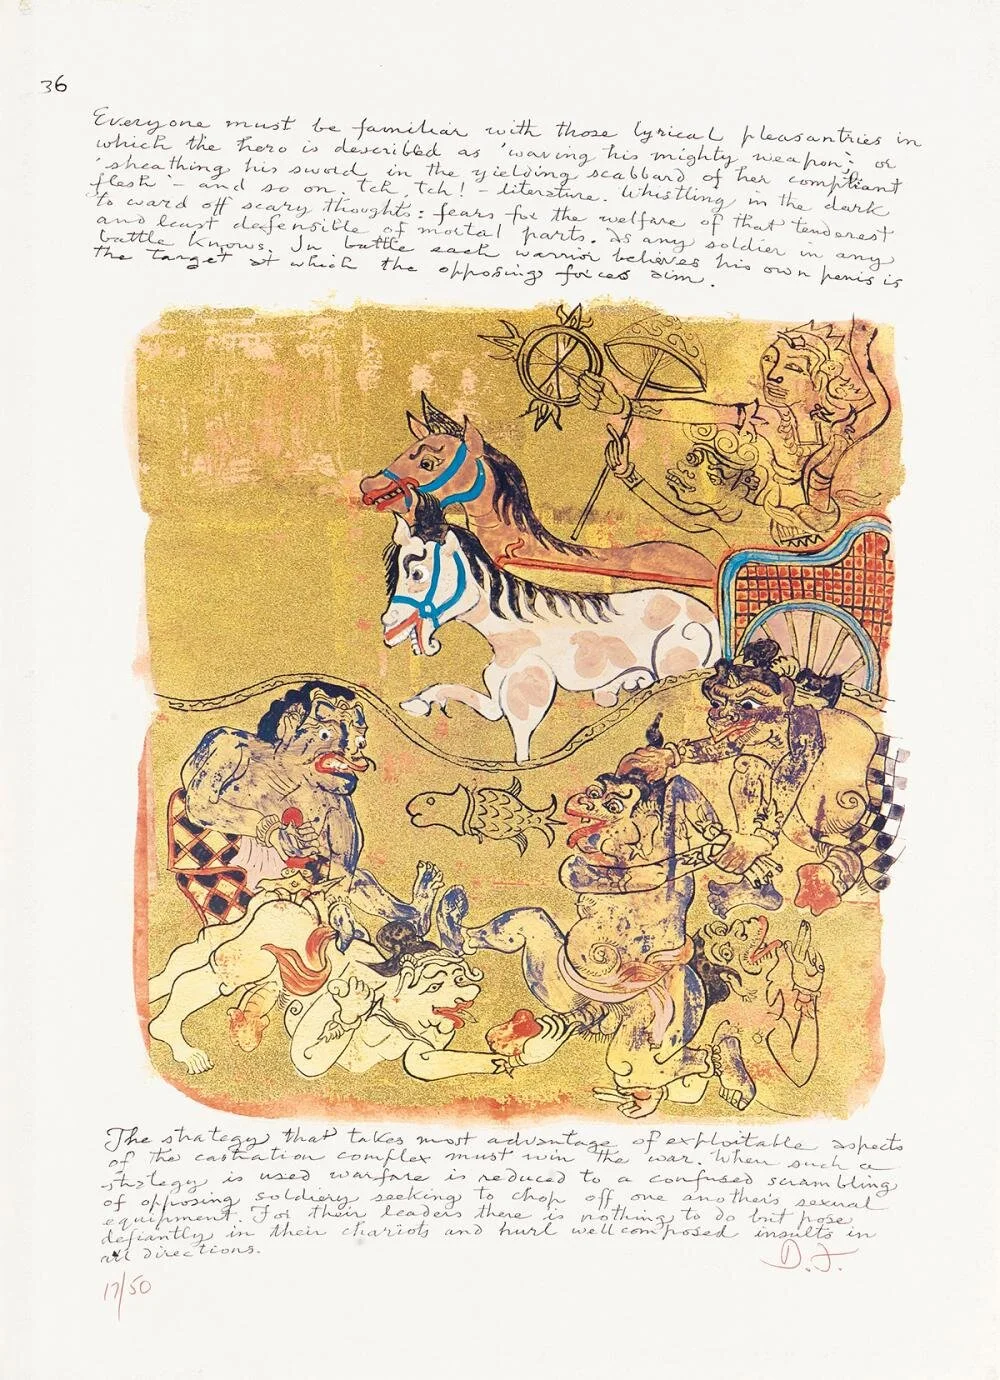 36
Everyone must be familiar with those lyrical pleasantries in
which the hero is described as 'waving his mighty weapon', or
'sheathing his sword in the yielding scabbard of her compliant
flesh' - and so on. Tch, tch! - literature. Whistling in the dark
to ward off scary thoughts: fears for the welfare of that tenderest
and least defensible of mortal parts. As any soldier in any
battle knows. In battle each warrior believes his own penis is
the target at which the opposing forces aim.
The strategy that takes most advantage of exploitable aspects
of the castration complex must win the war. When such a
strategy is used warfare is reduced to a confused scrambling
of opposing soldiery seeking to chop off one another's sexual
equipment. For their leaders there is nothing to do but pose
defiantly in their chariots and hurl well composed insults in
all directions.
D.F.
17/50